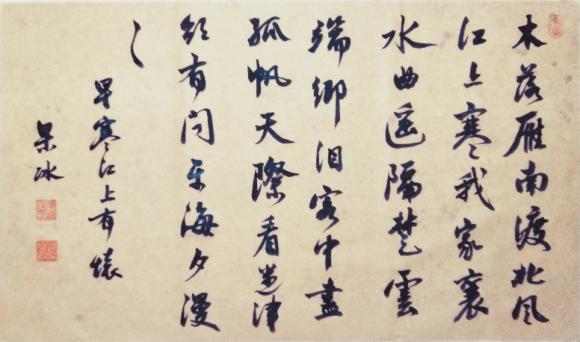 木落雁南渡北风
江上寒我家襄
水曲遥隔楚雲
端鄉泪客中盡
孤帆天際看迷津
欲有问平海夕漫
々
早寒江上有懷
冰